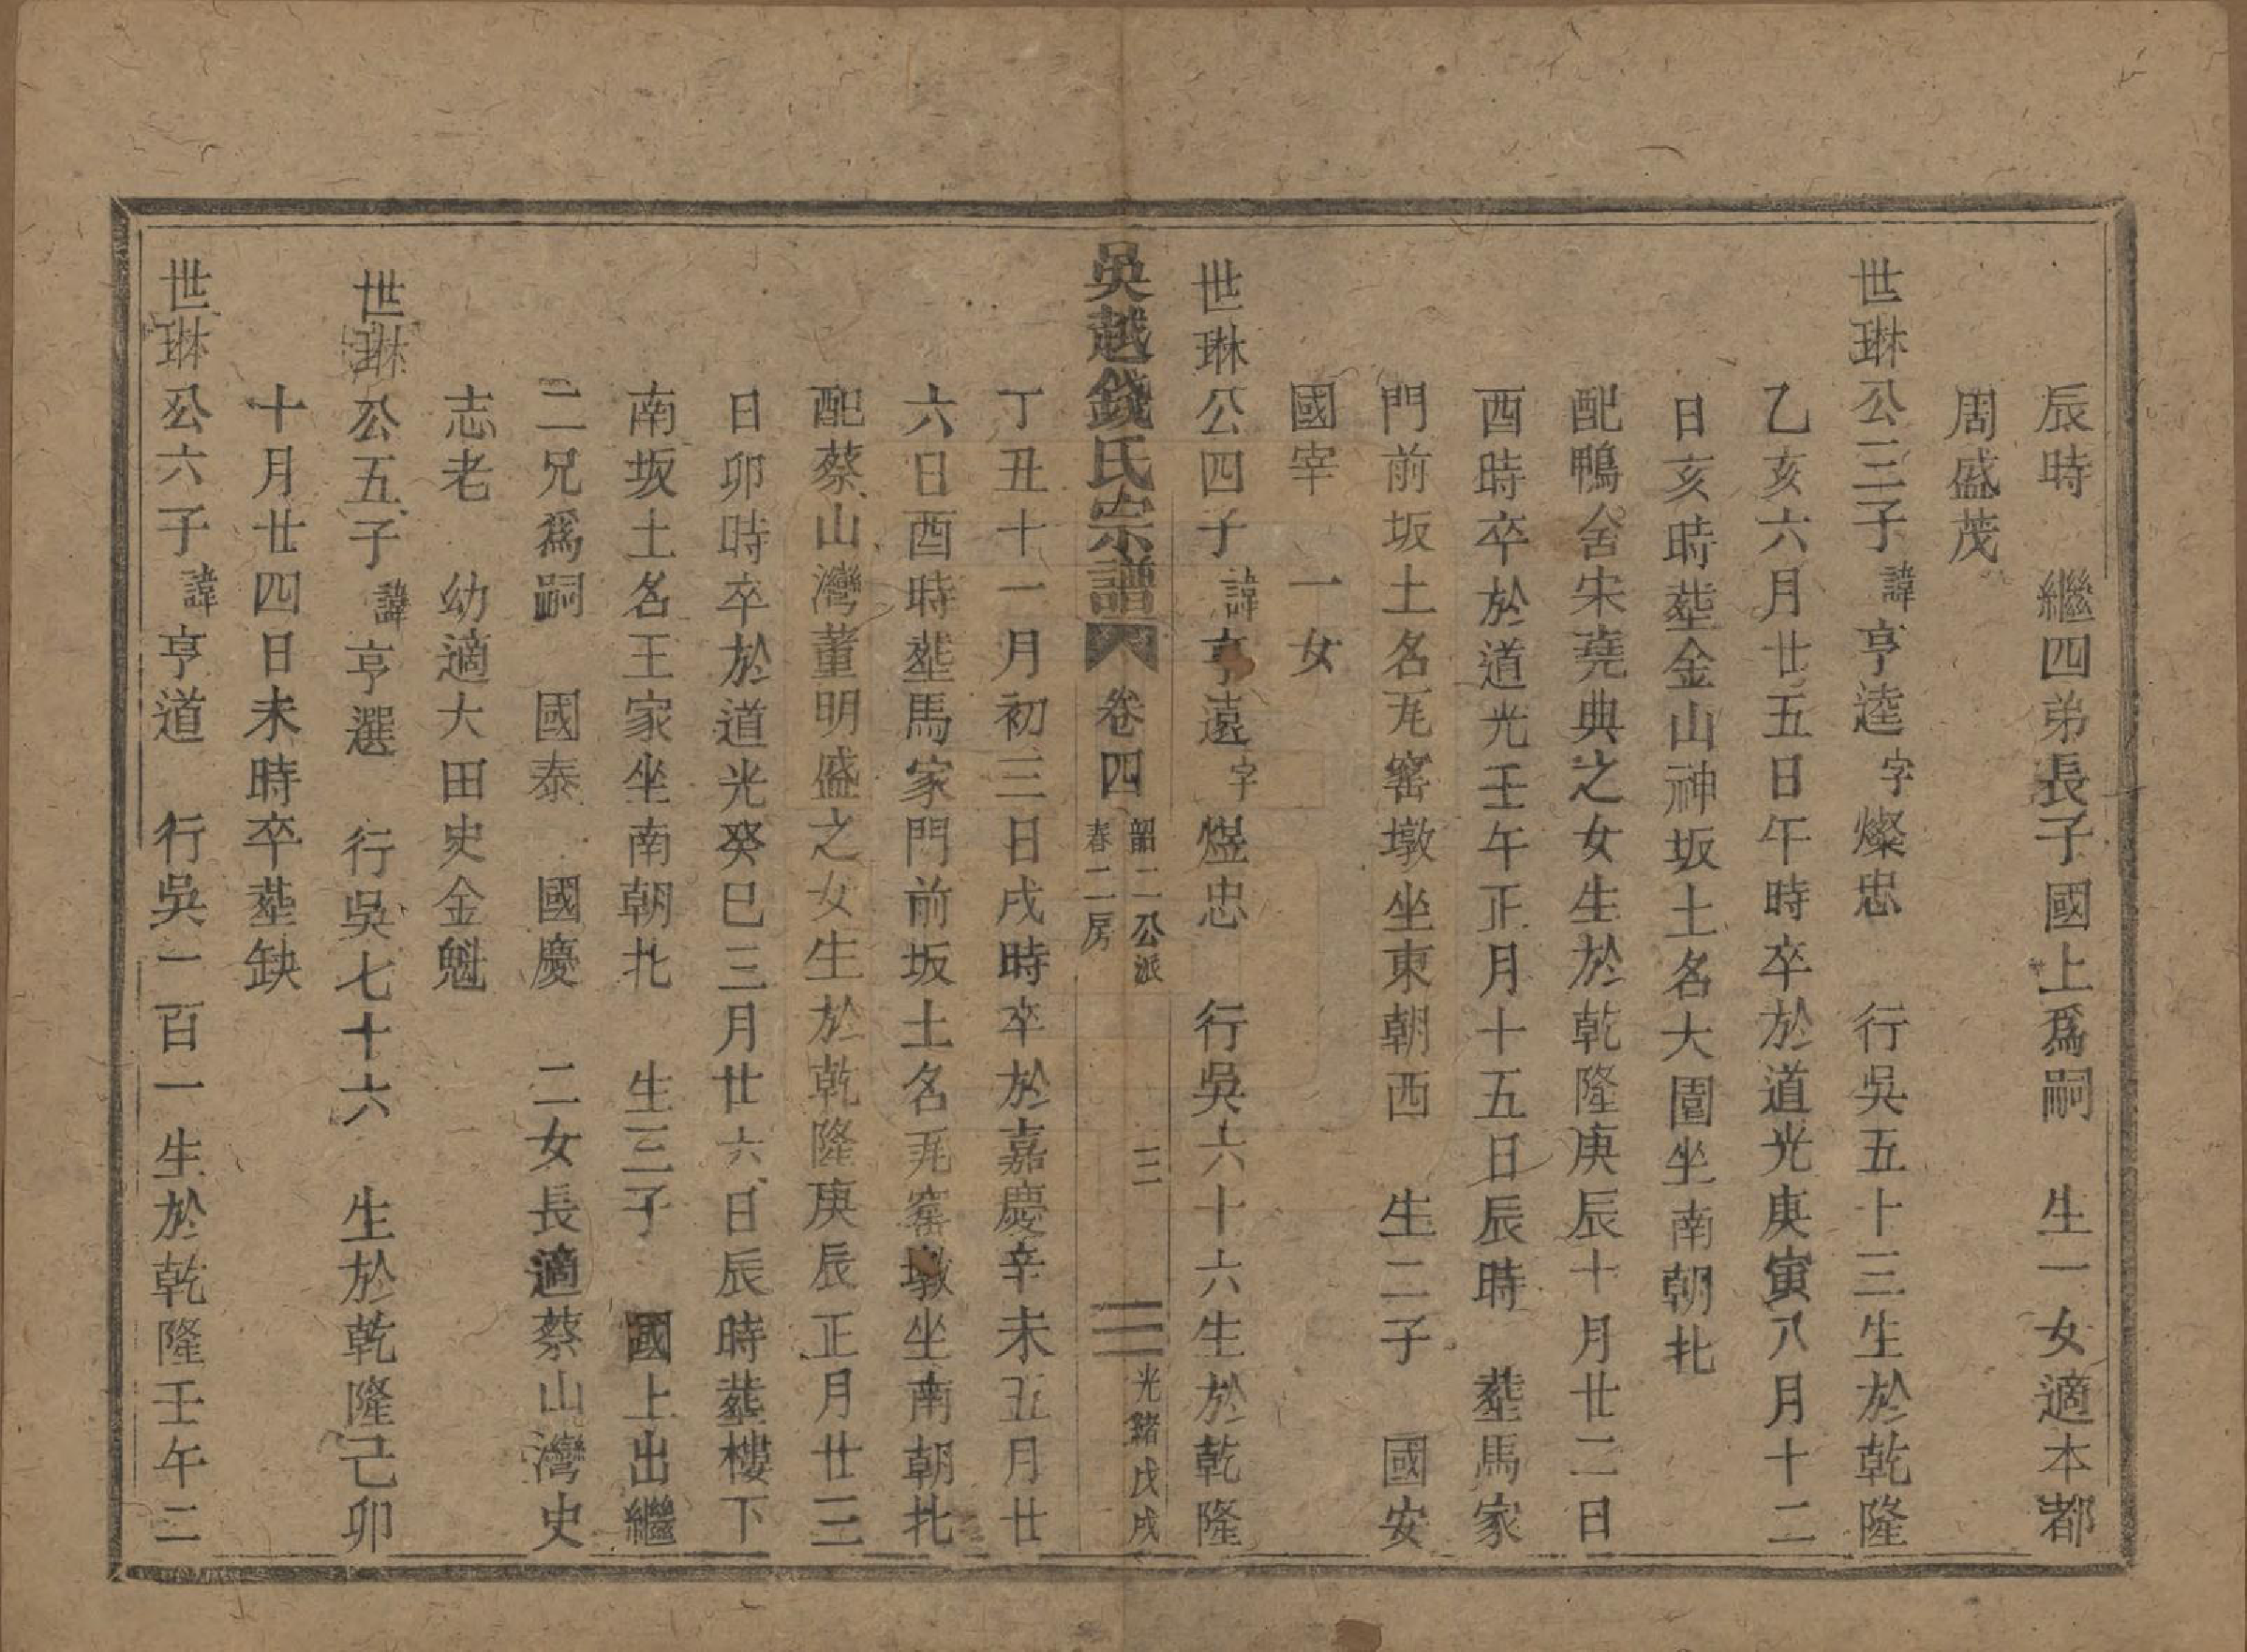 辰時　繼四弟長子國上爲嗣　生一女適本都
周盛茂
世琳公三子諱亨逵字燦忠　行吳五十三生於乾隆
乙亥六月廿五日午時卒於道光庚寅八月十二
日亥時塟金山神坂土名大園坐南朝北
配鴨舍宋堯典之女生於乾隆庚辰十月廿二日
酉時卒於道光壬午正月十五日辰時　塟馬家
門前坂土名瓦窰墩坐東朝西　生二子　國安
國宰　一女
世琳公四子諱亨遠字煜忠　行吳六十六生於乾隆
吳越錢氏宗譜　卷四　韶二公派　春二房　三　光緖戊戌
丁丑十一月初三日戌時卒於嘉慶辛未五月廿
六日酉時塟馬家門前坂土名瓦窰墩坐南朝北
配蔡山灣董明盛之女生於乾隆庚辰正月廿三
日卯時卒於道光癸巳三月廿六日辰時塟樓下
南坂土名王家坐南朝北　生三子　國上出繼
二兄爲嗣　國泰　國慶　二女長適蔡山灣史
志老　幼適大田史金魁
世琳公五子諱亨選　行吳七十六　生於乾隆己卯
十月廿四日未時卒塟缺
世琳公六子諱亨道　行吳一百一生於乾隆壬午二